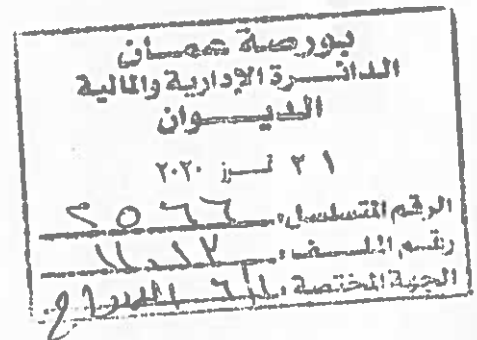 بورصة عمان
الدائرة الإدارية والمالية
الديوان
٢١ تموز ٢٠٢٠
الرقم المتسلسل: ٢٥٦٦
رقم الملف:
الجهة المختصة: